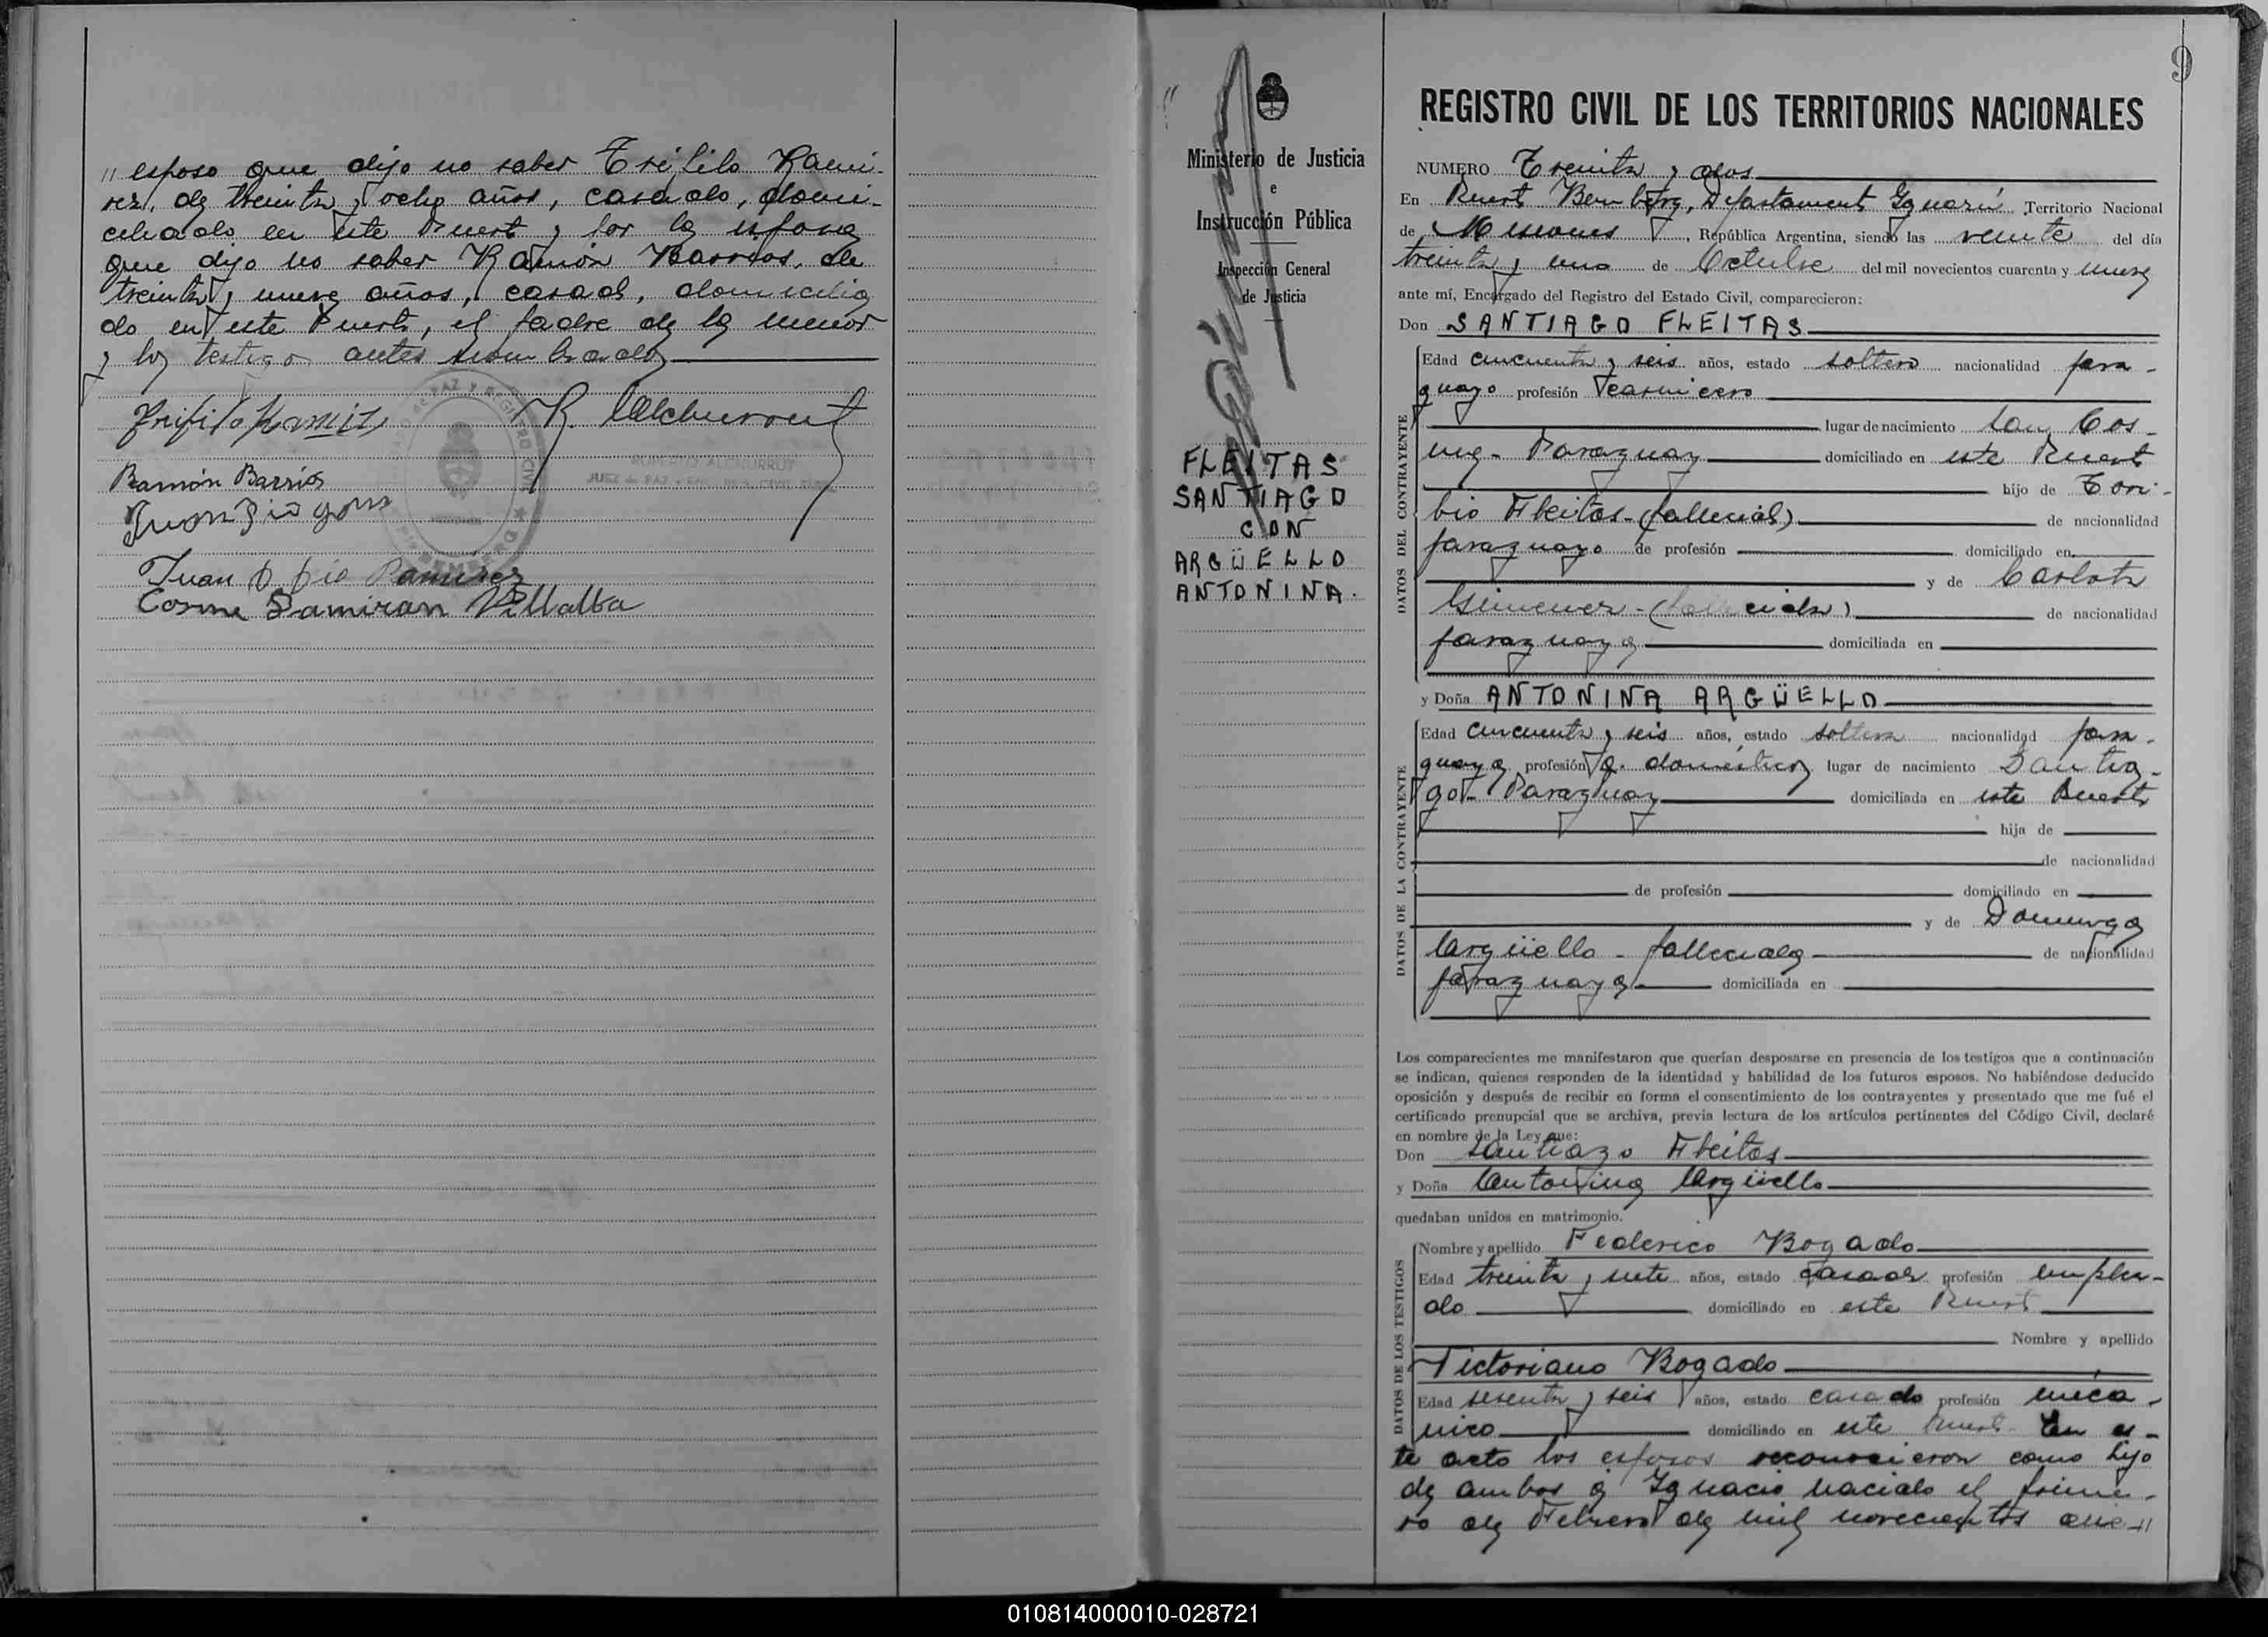 " esposo que dijo no saber Trifilo Rami-
rez, de treinta y ocho años, casado, domi-
ciliado en este Puerto y por la esposa
que dijo no saber Ramón Barrios, de
treinta y nueve años, casado, domicilia
do en este Puerto, el padre de la menor
y los testigos antes nombrados
Trifilo Ramirez
R. Alchurrut
Ramón Barrios
ROBERTO ALCHURRUT
Juan Pio Ramirez
Cosme Damiran Villalba
9
Ministerio de Justicia
e
Instrucción Pública
Inspección General
de Justicia
FLEITAS
SANTIAGO
CON
ARGÜELLO
ANTONINA.
REGISTRO CIVIL DE LOS TERRITORIOS NACIONALES
NUMERO Treinta y dos
En Puerto Bemberg, Departamento Iguazú Territorio Nacional
de Misiones, República Argentina, siendo las veinte del día
treinta y uno de Octubre del mil novecientos cuarenta y nueve
ante mí, Encargado del Registro del Estado Civil, comparecieron:
Don SANTIAGO FLEITAS
DATOS DEL CONTRAYENTE
Edad cincuenta y seis años, estado soltero nacionalidad para-
guayo profesión carnicero
lugar de nacimiento San Cos-
me- Paraguay domiciliado en este Puerto
hijo de Tori-
bio Fleitas-(fallecido) de nacionalidad
paraguayo de profesión domiciliado en
y de Carlota
Gimenez-(fallecida) de nacionalidad
paraguaya domiciliada en
y Doña ANTONINA ARGÜELLO
DATOS DE LA CONTRAYENTE
Edad cincuenta y seis años, estado soltera nacionalidad para-
guaya profesión q. domésticos lugar de nacimiento Santia-
go- Paraguay domiciliada en este Puerto
hija de
de nacionalidad
de profesión domiciliado en
y de Dominga
Argüello - fallecida de nacionalidad
paraguaya domiciliada en
Los comparecientes me manifestaron que querían desposarse en presencia de los testigos que a continuación
se indican, quienes responden de la identidad y habilidad de los futuros esposos. No habiéndose deducido
oposición y después de recibir en forma el consentimiento de los contrayentes y presentado que me fué el
certificado prenupcial que se archiva, previa lectura de los artículos pertinentes del Código Civil, declaré
en nombre de la Ley que:
Don Santiago Fleitas
y Doña Antonina Argüello
quedaban unidos en matrimonio.
DATOS DE LOS TESTIGOS
Nombre y apellido Federico Bogado
Edad treinta y siete años, estado casado profesión emplea-
do domiciliado en este Puerto
Nombre y apellido
Victoriano Bogado
Edad sesenta y seis años, estado casado profesión mecá-
nico domiciliado en este Puerto En es-
te acto los esposos reconocieron como hijo
de ambos a Ignacio nacido el prime-
ro de Febrero de mil novecientos
010814000010-028721